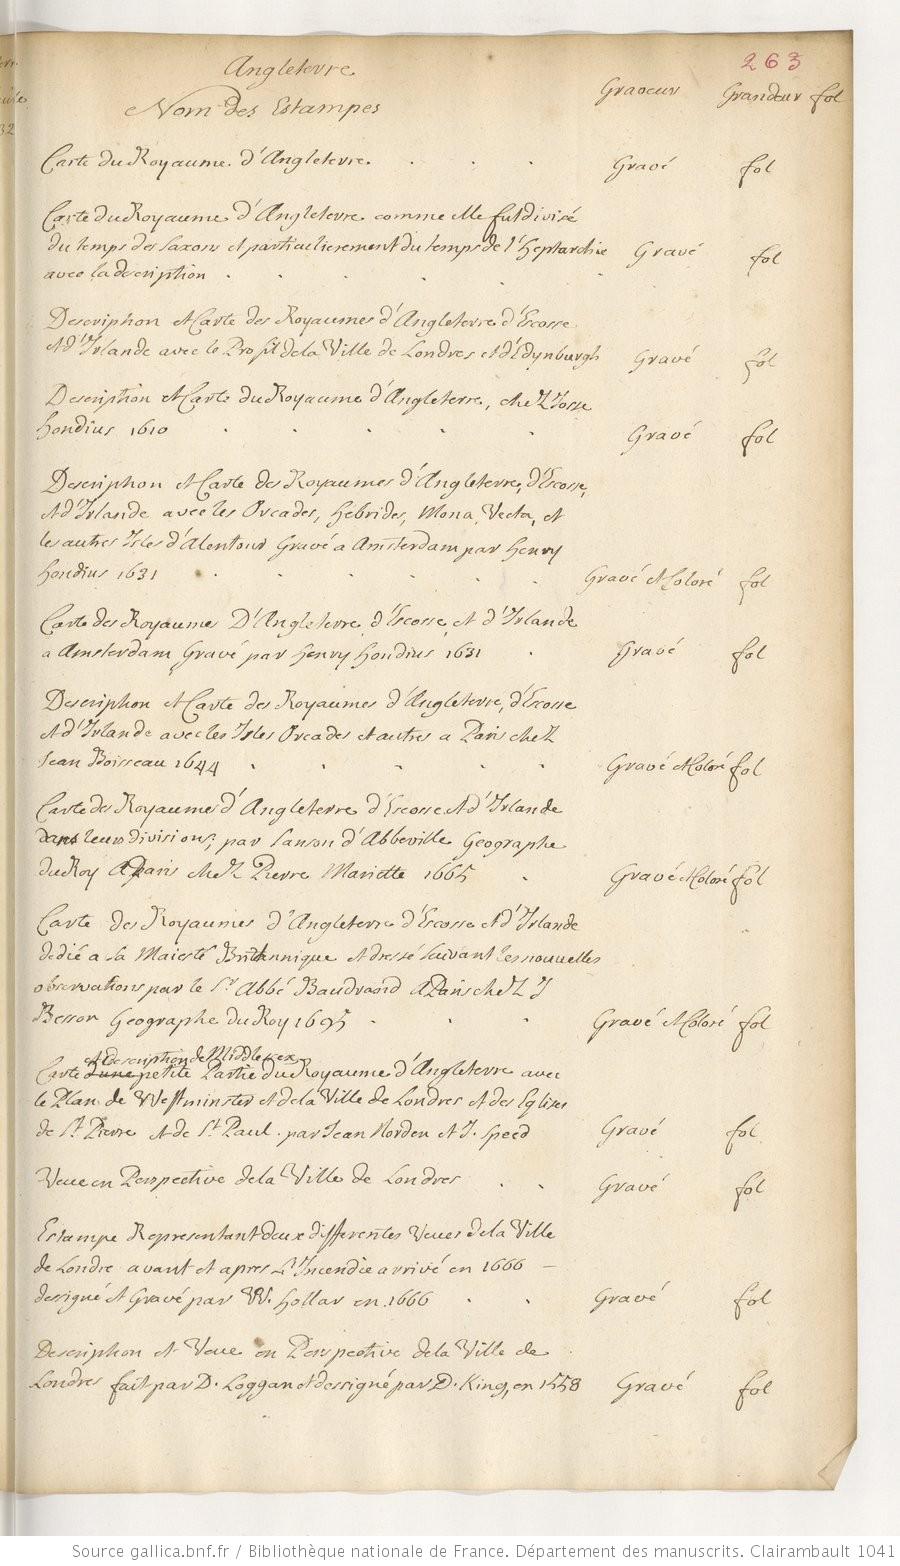 Angleterre
263
Nom des Estampes Graveur Grandeur fol
Carte du Royaume d'Angleterre . . . Gravé fol
Carte du Royaume d'Angleterre comme elle fut divisé
du temps des Saxons et particulierement du temps de l'Heptarchie Gravé fol
avec la description . . . . . .
Description et Carte des Royaumes d'Angleterre d'Escosse
et d'Irlande avec le Profil de la Ville de Londres et d'Edynburgh Gravé fol
Description et Carte du Royaume d'Angleterre, chez Josse
Hondius 1610 . . . . . Gravé fol
Description et Carte des Royaumes d'Angleterre, d'Escosse,
et d'Irlande avec les Orcades, Hebrides, Mona, Vecta, et
les autres Isles d'Alentour Gravé a Amsterdam par Henry
Hondius 1631 . . . . . . Gravé et Coloré fol
Carte des Royaumes D'Angleterre d'Escosse et d'Irlande
a Amsterdam Gravé par Henry Hondius 1631 . Gravé fol
Description et Carte des Royaumes d'Angleterre, d'Escosse
et d'Irlande avec les Isles Orcades et autres a Paris chez
Jean Boisseau 1644 . . . . . Gravé et Coloré fol
Carte des Royaumes d'Angleterre d'Escosse et d'Irlande
dans leurs divisions; par Sanson d'Abbeville Geographe
du Roy A Paris chez Pierre Mariette 1665 . Gravé et Coloré fol
Carte des Royaumes d'Angleterre d'Escosse et d'Irlande
dedié a Sa Majesté Britannique et dressé suivant les nouvelles
observations par le Sr Abbé Baudrand A Paris chez J
Besson Geographe du Roy 1695 . . . Gravé et Coloré fol
et description de Middlesex
Carte d'une petite Partie du Royaume d'Angleterre avec
le Plan de Westminster et de la Ville de Londres et des Eglises
de St Pierre et de St Paul par Jean Norden et J. Speed Gravé fol
Veue en Perspective de la Ville de Londres . . Gravé fol
Estampe Representant deux differentes Veues de la Ville
de Londre avant et apres L'Incendie arrivé en 1666 –
dessigné et Gravé par W. Hollar en 1666 . . Gravé fol
Description et Veue en Perspective de la Ville de
Londres fait par D. Loggan et dessigné par D. King, en 1558 Gravé fol
Source gallica.bnf.fr / Bibliothèque nationale de France. Département des manuscrits. Clairambault 1041